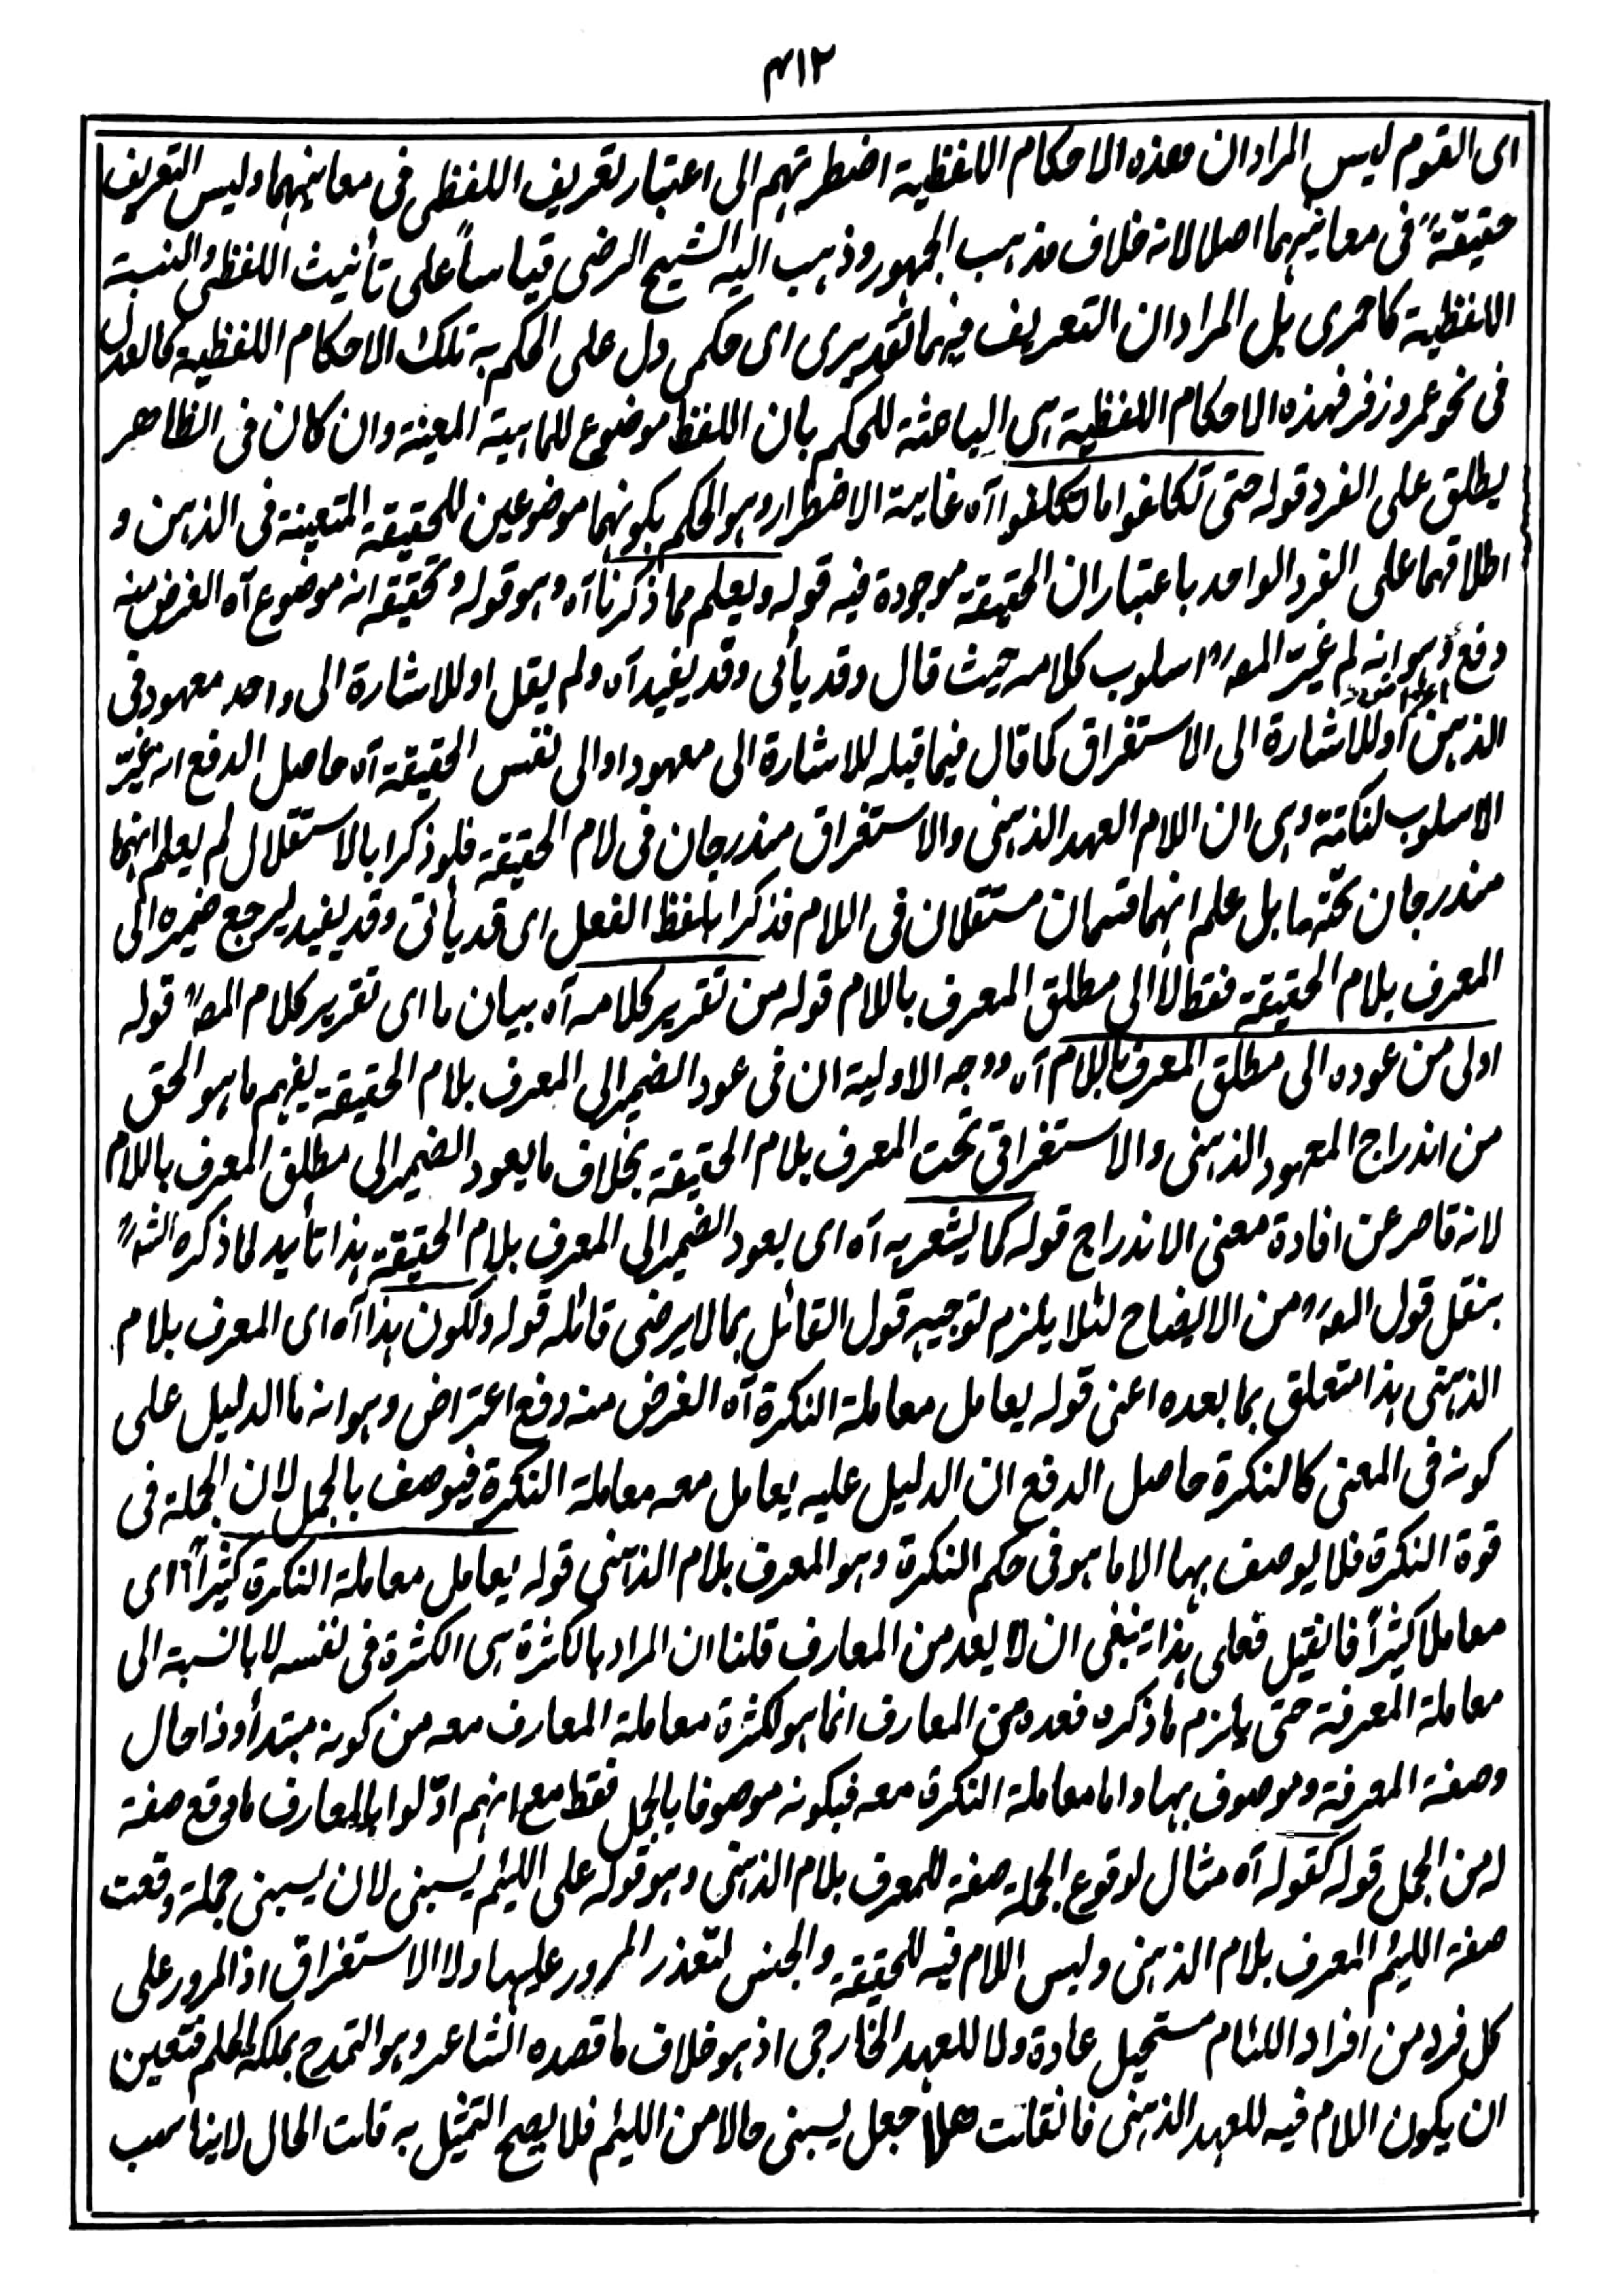 ۴۱۲
ای القوم لیس المراد ان هذه الاحکام اللفظیة اضطرتهم الی اعتبار تعریف اللفظی فی معانیهما ولیس التعریف
حقیقةً فی معانیهما اصلا لانه خلاف مذهب الجمهور وذهب الیه الشیخ الرضی قیاساً علی تأنیث اللفظی والنسبة
اللفظیة کما حمری بل المراد ان التعریف فیهما تقدیری ای حکمی دل علی الحکم به تلک الاحکام اللفظیة کالعدل
فی نحو عمر وزفر فهذه الاحکام اللفظیة هی الباعثة للحکم بان اللفظ موضوع للماهیة المعینة وان کان فی الظاهر
یطلق علی الفرد قوله حتی تکلفوا ما تکلفوا آه غایة الاضطرار وهو الحکم بکونهما موضوعین للحقیقة المتعینة فی الذهن و
اطلاقهما علی الفرد الواحد باعتبار ان الحقیقة موجودة فیه قوله ویعلم مما ذکرنا آه وهو قوله وتحقیقه انه موضوع آه الغرض منه
دفع وهو انه لم غیّر المصؒ اسلوب کلامه حیث قال وقد یأتی وقد یفید آه ولم یقل او للاشارة الی واحد معهود فی
الذهن او للاشارة الی الاستغراق کما قال فیما قبله للاشارة الی معهود او الی نفس الحقیقة آه حاصل الدفع انه غیّر
الاسلوب لنکتة وهی ان اللام العهد الذهنی والاستغراق مندرجان فی لام الحقیقة فلو ذکرا بالاستقلال لم یعلم انهما
مندرجان تحتها بل علم انهما قسمان مستقلان فی اللام فذکرا بلفظ الفعل ای قد یأتی وقد یفید لیرجع ضمیره الی
المعرف بلام الحقیقة فقط لا الی مطلق المعرف باللام قوله من تقریر کلامه آه بیان ما ای تقریر کلام المصؒ قوله
اولی من عوده الی مطلق المعرف باللام آه ووجه الاولیة ان فی عود الضمیر الی المعرف بلام الحقیقة یفهم ما هو الحق
من اندراج المعهود الذهنی والاستغراقی تحت المعرف بلام الحقیقة بخلاف ما یعود الضمیر الی مطلق المعرف باللام
لانه قاصر عن افادة معنی الاندراج قوله کما یشعر به آه ای بعود الضمیر الی المعرف بلام الحقیقة هذا تأیید لما ذکره الشؒ
بنقل قول المصؒ من الایضاح لئلا یلزم توجیه قول القائل بما لا یرضی قائله قوله ولکون هذا آه ای المعرف بلام
الذهنی هذا متعلق بما بعده اعنی قوله یعامل معاملة النکرة آه الغرض منه دفع اعتراض وهو انه ما الدلیل علی
کونه فی المعنی کالنکرة حاصل الدفع ان الدلیل علیه یعامل معه معاملة النکرة فیوصف بالجمل لان الجملة فی
قوة النکرة فلا یوصف بها الا ما هو فی حکم النکرة وهو المعرف بلام الذهنی قوله یعامل معاملة النکرة کثیراً ای
معاملا کثیراً فانقیل فعلی هذا ینبغی ان لا یعد من المعارف قلنا ان المراد بالکثرة هی الکثرة فی نفسه لا بالنسبة الی
معاملة المعرفة حتی یلزم ما ذکره فعده من المعارف انما هو لکثرة معاملة المعارف معه من کونه مبتدأ وذا حال
وصفة المعرفة وموصوف بها واما معاملة النکرة معه فبکونه موصوفا بالجمل فقط مع انهم ادّلوا بالمعارف ما وقع صفة
له من الجمل قوله کقوله آه مثال لوقوع الجملة صفة للمعرف بلام الذهنی وهو قوله علی اللئیم یسبنی لان یسبنی جملة وقعت
صفة اللئیم المعرف بلام الذهنی ولیس اللام فیه للحقیقة والجنس لتعذر المرور علیها ولا الاستغراق اذ المرور علی
کل فرد من افراد اللئام مستحیل عادة ولا للعهد الخارجی اذ هو خلاف ما قصده الشاعر وهو التمدح بملکة الحلم فتعین
ان یکون اللام فیه للعهد الذهنی فانقلت هلا جعل یسبنی حالا من اللئیم فلا یصح التمثیل به قلت الحال لا یناسب